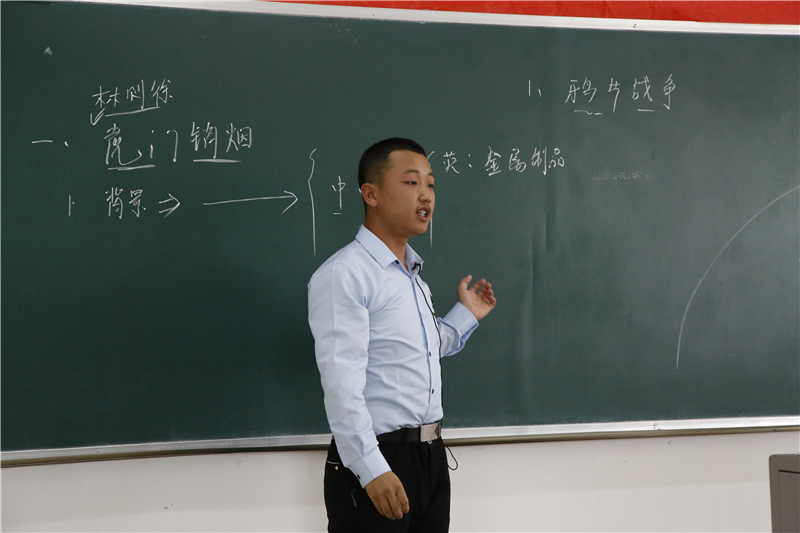 林则徐
一、虎门销烟
1 背景⇒ → { 中
英：金属制品
1、鸦片战争